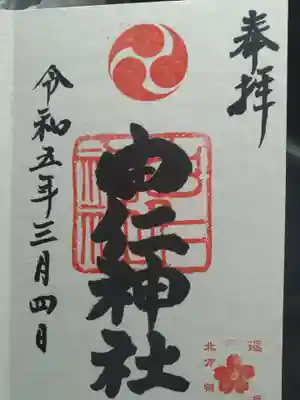 奉拝
由仁神社
令和五年三月四日
北方領